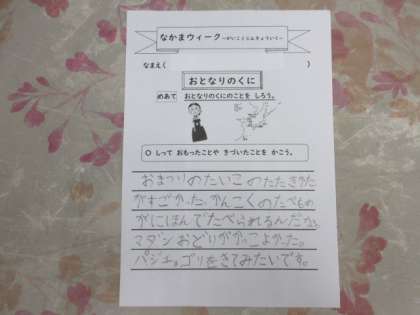 なかまウィーク～がいこくじんきょういく～
なまえ(　　　　　)
おとなりのくに
めあて　おとなりのくにのことを しろう。
○ しって おもったことや きづいたことを かこう。
おまつりのたいこのたたきかた
がすごかった。かんこくのたべもの
がにほんでたべられるんだな。
マダンおどりがかっこよかった。
パジチョゴリをきてみたいです。